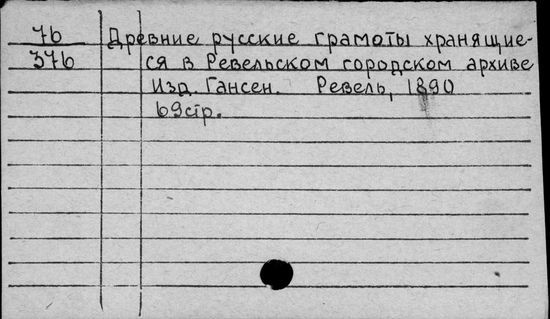 7б Древние русские грамоты хранящие-
37б ся в Ревельском городском архиве
Изд. Гансен. Ревель, 1890
69стр.